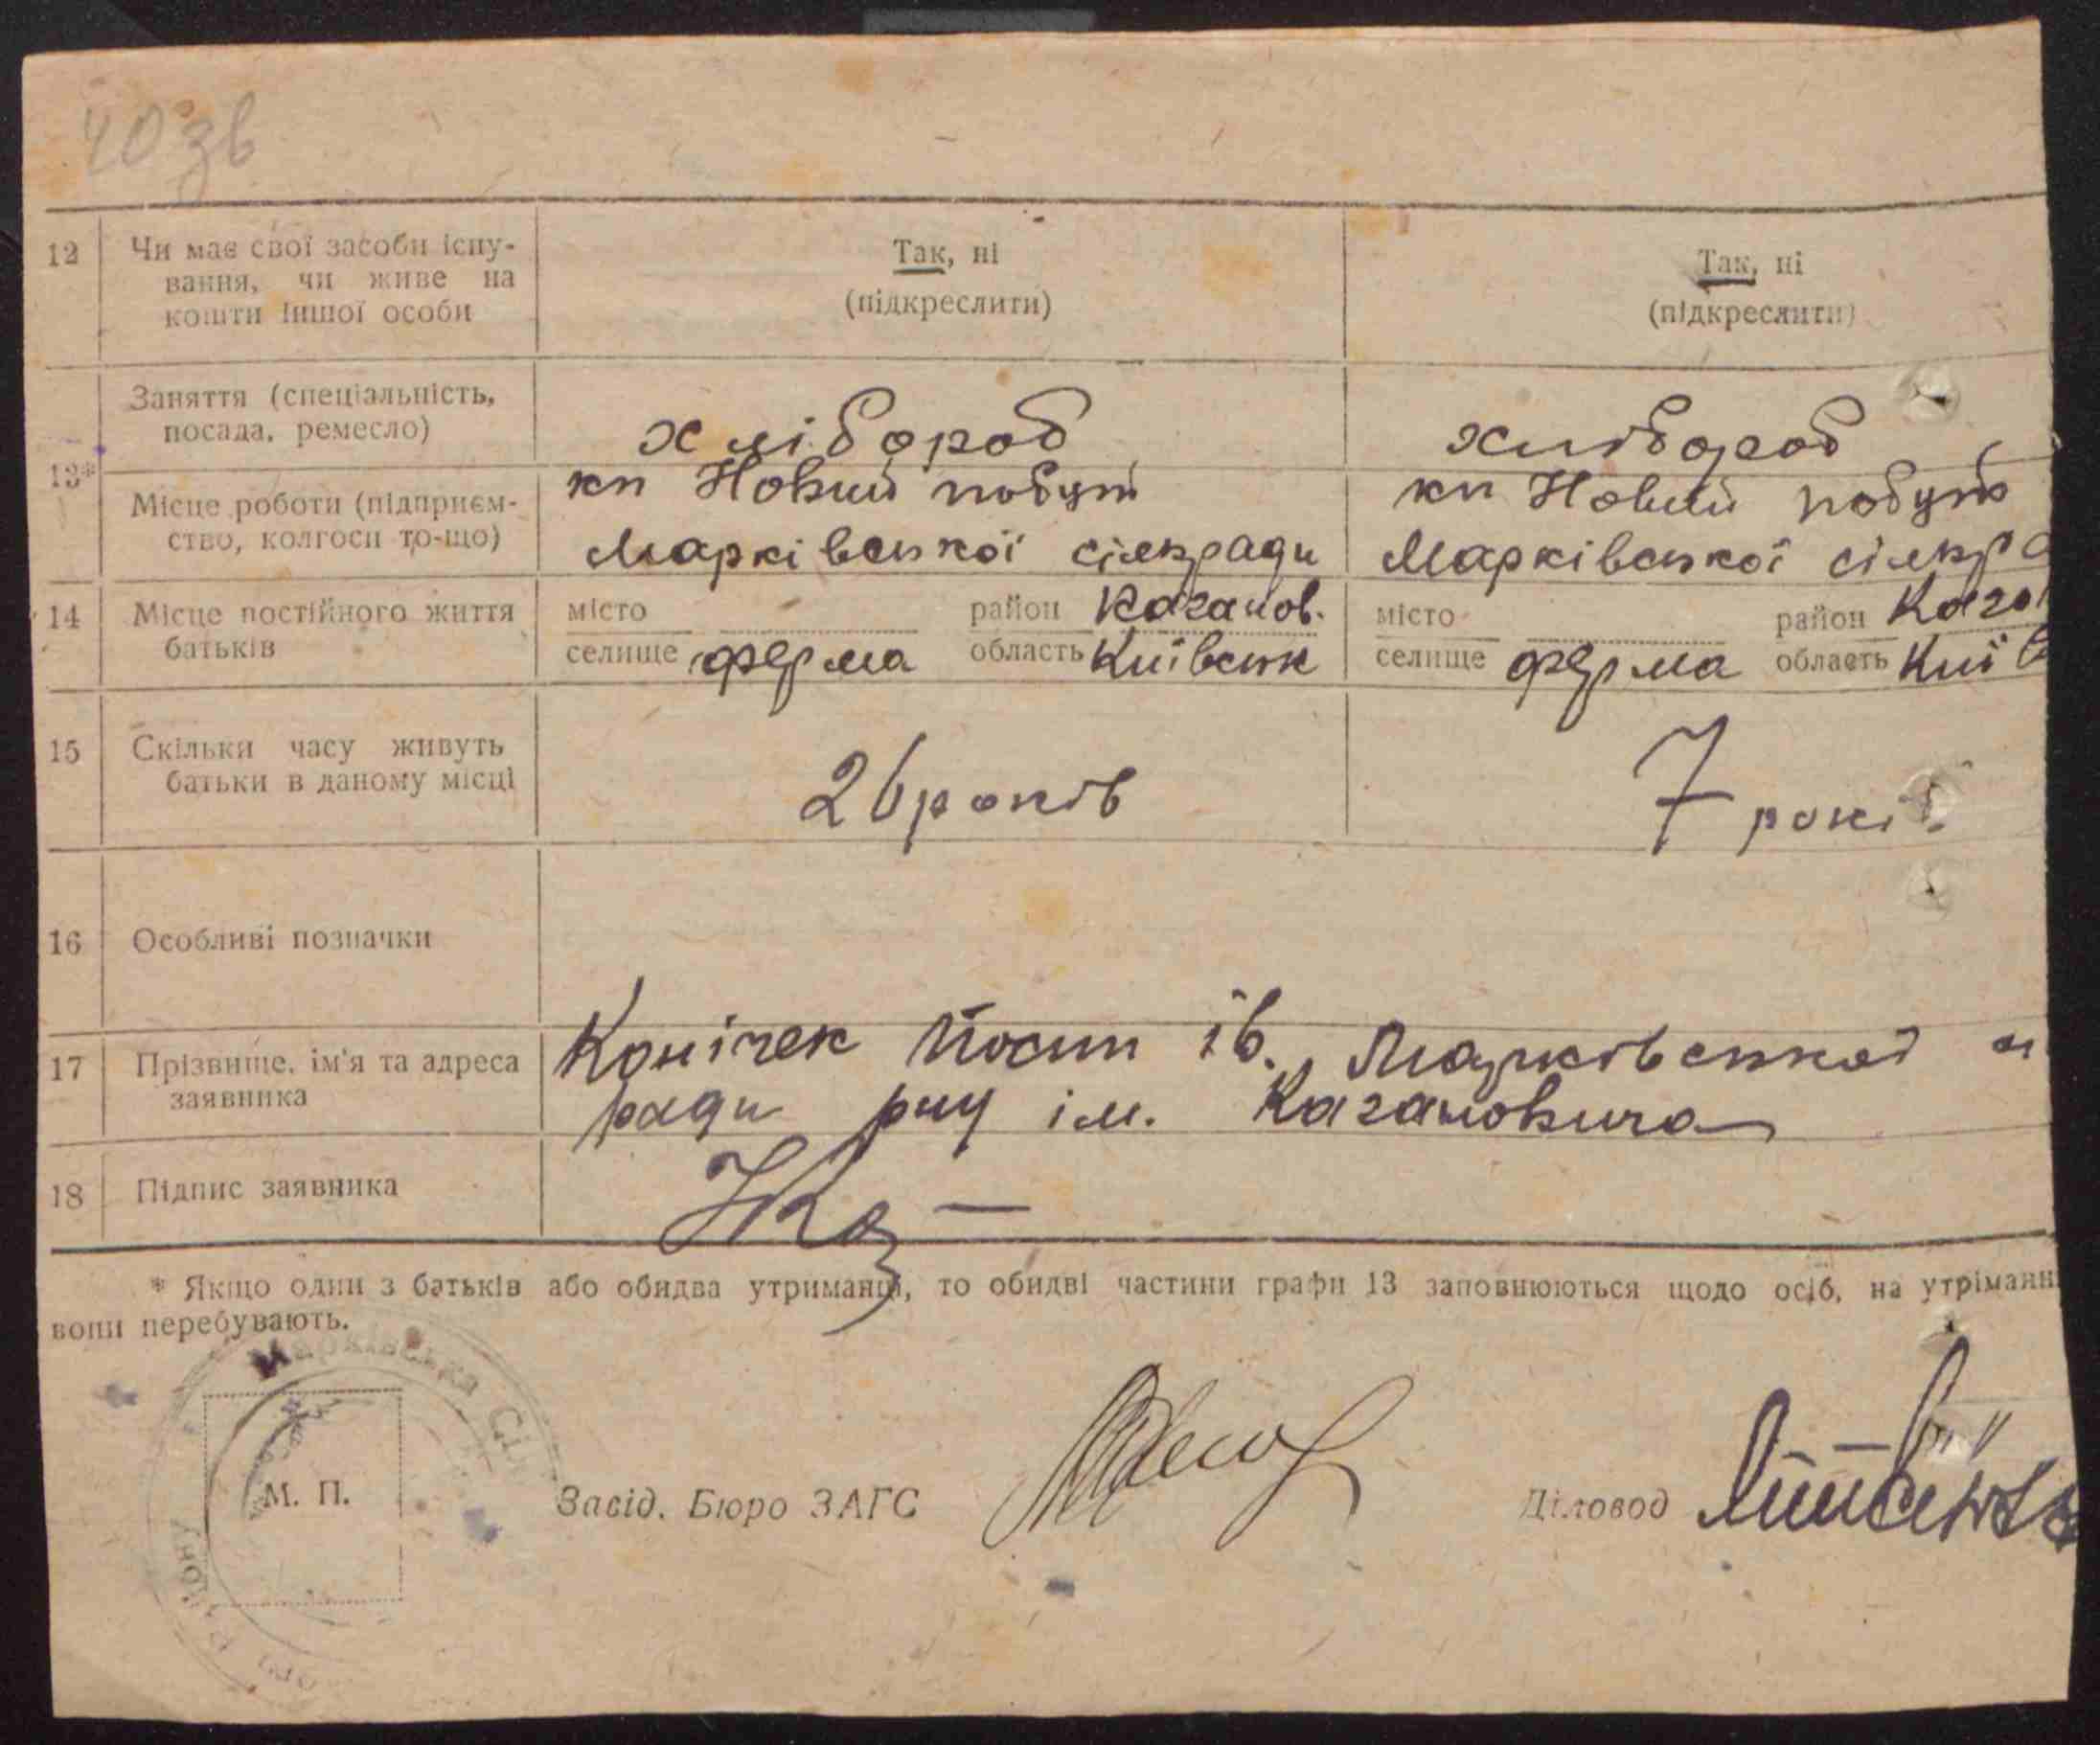 40 зв
12 Чи має свої засоби існу- Так, ні Так, ні
вання, чи живе на (підкреслити) (підкреслити)
кошти іншої особи
Заняття (спеціальність, хлібороб хлібороб
посада, ремесло)
13*
Місце роботи (підприєм- кп Новий побут кп Новий побут
ство, колгосп то-що) Марківської сількради Марківської сількра
14 Місце постійного життя місто район Каганов. місто район Кага
батьків селище ферма область Київськ селище ферма область Київ
15 Скільки часу живуть 26 років 7 років
батьки в даному місці
16 Особливі позначки
17 Прізвище, ім'я та адреса Конічек Йосип Ів. Марківської
заявника ради р-ну ім. Кагановича
18 Підпис заявника
* Якщо один з батьків або обидва утриманці, то обидві частини графи 13 заповнюються щодо осіб, на утріманн
вони перебувають.
Марківська Сіл
району
М. П. Засід. Бюро ЗАГС Діловод